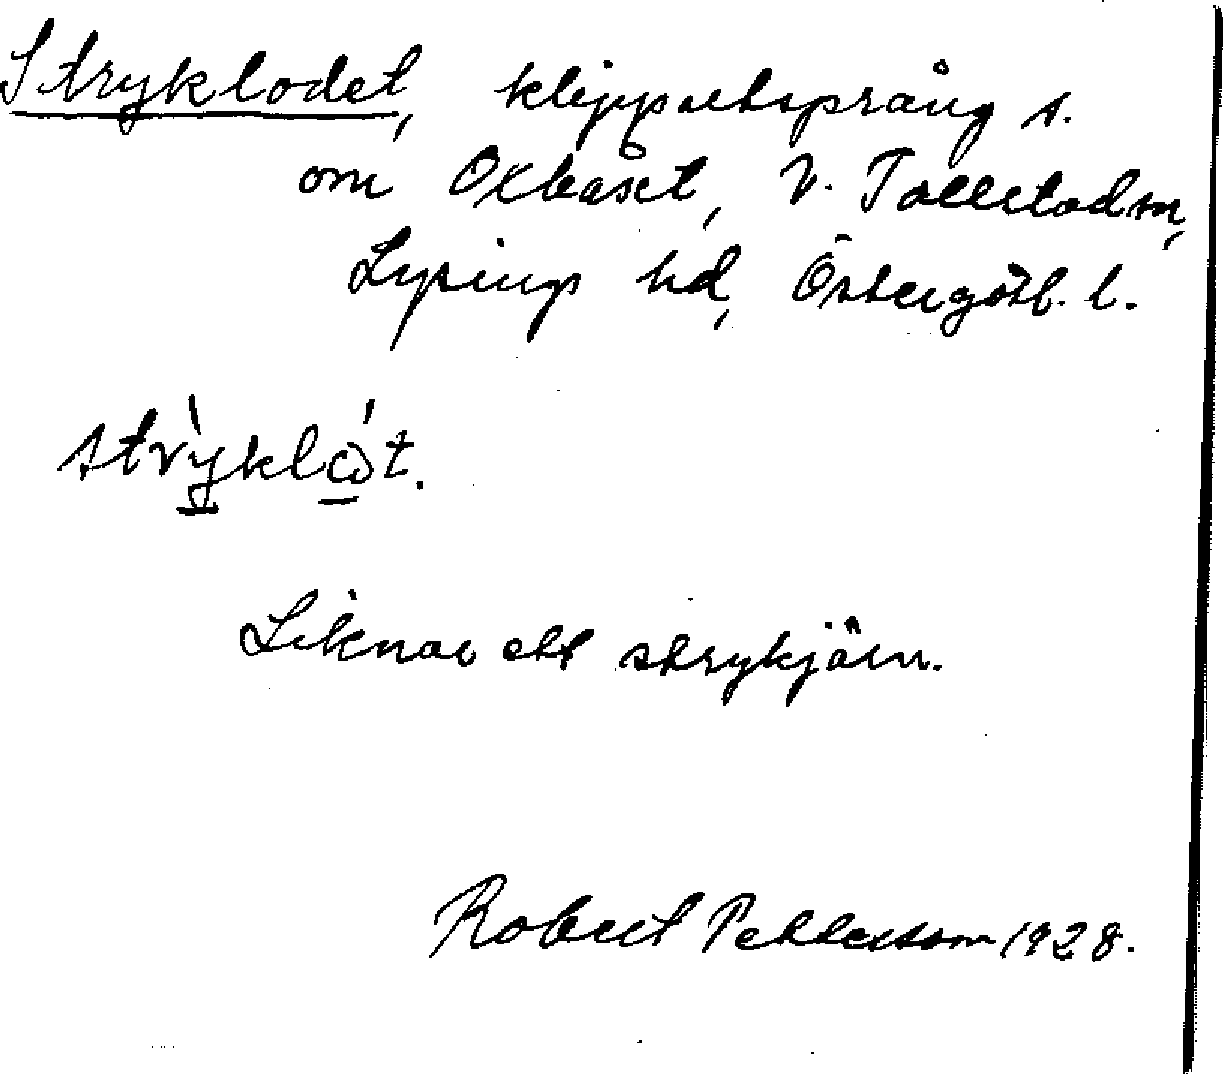 Stryklodet, klipputsprång s.
om Oxbåset, V. Tollstad sn,
Lysings hd, Östergötl. l.
strýklὼt.
Liknar ett strykjärn.
Robert Pettersson 1928.